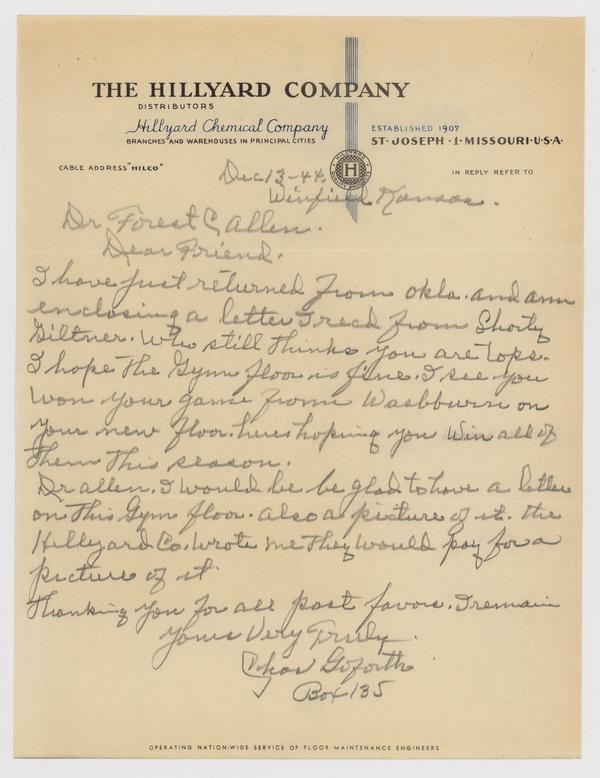 THE HILLYARD COMPANY
DISTRIBUTORS
Hillyard Chemical Company
BRANCHES AND WAREHOUSES IN PRINCIPAL CITIES
ESTABLISHED 1907
ST. JOSEPH · 1 · MISSOURI · U·S·A·
CABLE ADDRESS "HILCO"
HILLYARD
H
IN REPLY REFER TO
Dec 13-44.
Winfield Kansas.
Dr Forest C Allen.
Dear Friend.
I have just returned from okla. and am
enclosing a letter I recd from Shorty
Giltner. Who still thinks you are tops.
I hope the Gym floor is fine. I see you
won your game from Washburn on
your new floor. heres hoping you win all of
them this season.
Dr allen. I would be be glad to have a letter
on this Gym floor. also a picture of it. the
Hillyard Co. wrote me they would pay for a
picture of it
Thanking you for all past favors. I remain
yours Very Truly.
Chas Goforth
Box 135
OPERATING NATION-WIDE SERVICE OF FLOOR MAINTENANCE ENGINEERS